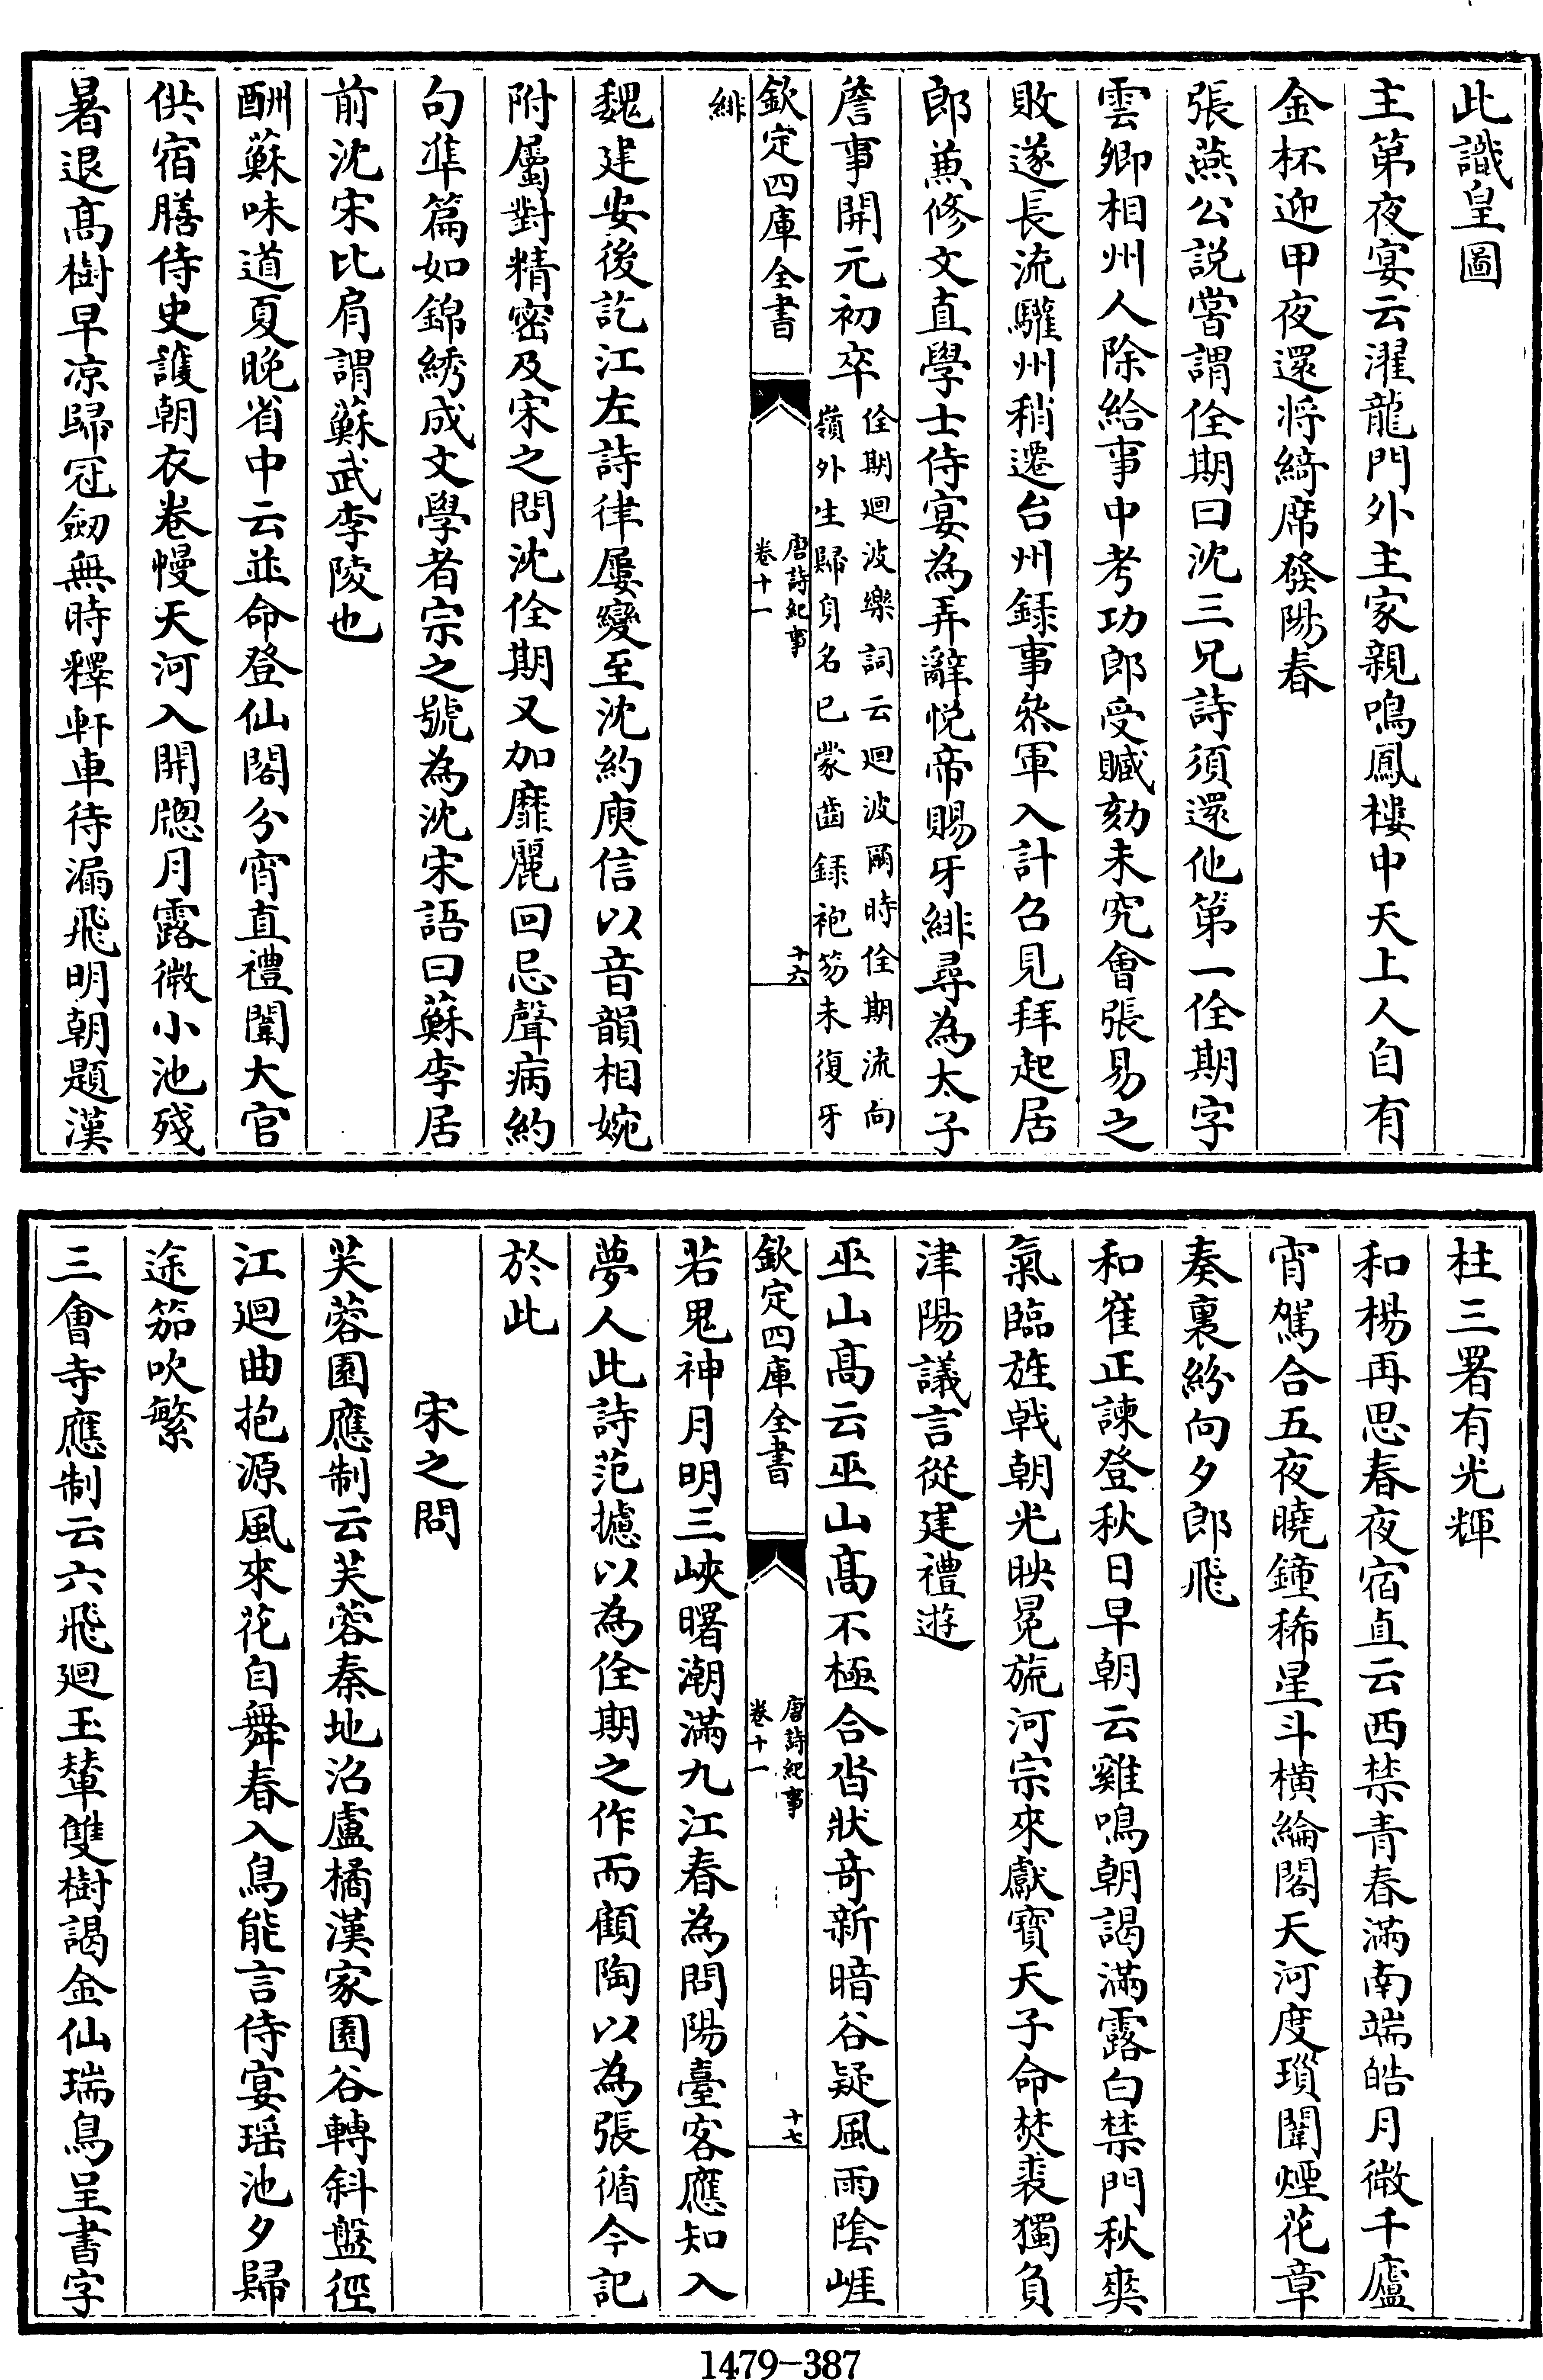 此識皇圖
主第夜宴云濯龍門外主家親鳴鳳樓中天上人自有
金杯迎甲夜還将綺席發陽春
張燕公説嘗謂佺期曰沈三兄詩須還他第一佺期字
雲卿相州人除給事中考功郎受贓劾未究會張易之
敗遂長流驩州稍遷台州録事叅軍入計召見拜起居
郎兼修文直學士侍宴為弄辭悦帝賜牙緋尋為太子
詹事開元初卒佺期廻波樂詞云廻波爾時佺期流向
嶺外生歸身名已蒙齒録袍笏未復牙
欽定四庫全書
唐詩紀事
卷十一
十六
緋
魏建安後訖江左詩律屢變至沈約庾信以音韻相婉
附屬對精密及宋之問沈佺期又加靡麗回忌聲病約
句凖篇如錦綉成文學者宗之號為沈宋語曰蘇李居
前沈宋比肩謂蘇武李陵也
酬蘇味道夏晚省中云並命登仙閣分宵直禮闈大官
供宿膳侍史護朝衣卷幔天河入開牕月露微小池殘
暑退髙樹早凉歸冠劒無時釋軒車待漏飛明朝題漢
柱三署有光輝
和楊再思春夜宿直云西禁青春滿南端皓月微千廬
宵駕合五夜曉鐘稀星斗橫綸閣天河度瑣闈煙花章
奏裏紛向夕郎飛
和崔正諫登秋日早朝云雞鳴朝謁滿露白禁門秋爽
氣臨旌戟朝光映冕旒河宗來獻寳天子命焚裘獨負
津陽議言從建禮遊
巫山髙云巫山髙不極合沓狀竒新暗谷疑風雨隂崕
欽定四庫全書
唐詩紀事
卷十一
十七
若鬼神月明三峽曙潮滿九江春為問陽臺客應知入
夢人此詩范攄以為佺期之作而顧陶以為張循今記
於此
宋之問
芙蓉園應制云芙蓉秦地沼盧橘漢家園谷轉斜盤徑
江廻曲抱源風來花自舞春入鳥能言侍宴瑶池夕歸
途笳吹繁
三會寺應制云六飛廻玉輦雙樹謁金仙瑞鳥呈書字
1479-387